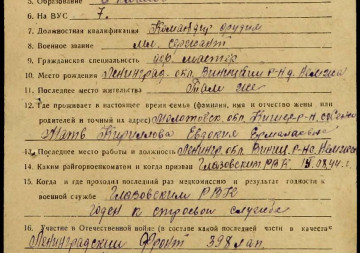 5. Образование
6. На ВУС 7.
7. Должностная квалификация Командир орудия
8. Военное звание мл. сержант
9. Гражданская специальность
10. Место рождения Ленинград. обл. Винницкий р-н д. Немжа
11. Последнее место жительства Там же
12. Где проживает в настоящее время семья (фамилия, имя и отчество жены или
родителей и точный их адрес) Молотовск. обл.
Мать Кириллова Евдокия
13. Последнее место работы и должность Ленингр. обл. Винниц. р-н
14. Каким райгорвоенкоматом и когда призван Глазовским РВК 44 г.
15. Когда и где проходил последний раз медкомиссию и результат годности к
военной службе Глазовским РВК
годен к строевой службе
16. Участие в Отечественной войне (в составе какой последней части и в качестве
Ленинградский фронт 398 лап.